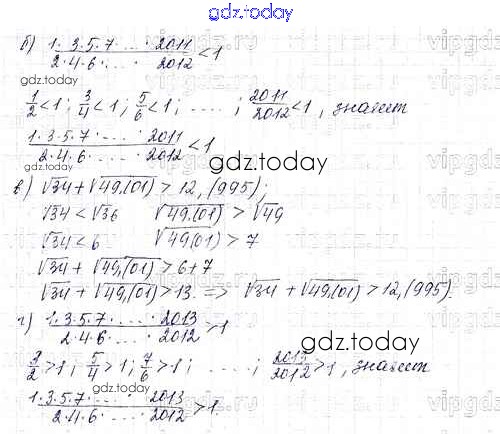 gdz.today
б) 1·3·5·7·....·2011/2·4·6·....·2012 < 1
gdz.today
1/2 < 1; 3/4 < 1; 5/6 < 1; ....; 2011/2012 < 1, значит
1·3·5·7·....·2011/2·4·6·....·2012 < 1
gdz.today
в) √34 + √49,(01) > 12,(995);
√34 < √36 √49,(01) > √49
√34 < 6 √49,(01) > 7
√34 + √49,(01) > 6+7
√34 + √49,(01) > 13 => √34 + √49,(01) > 12,(995).
г) 1·3·5·7·....·2013/2·4·6·....·2012 > 1
gdz.today
3/2 > 1; 5/4 > 1; 7/6 > 1; ....; 2013/2012 > 1, значит
1·3·5·7·....·2013/2·4·6·....·2012 > 1
gdz.today